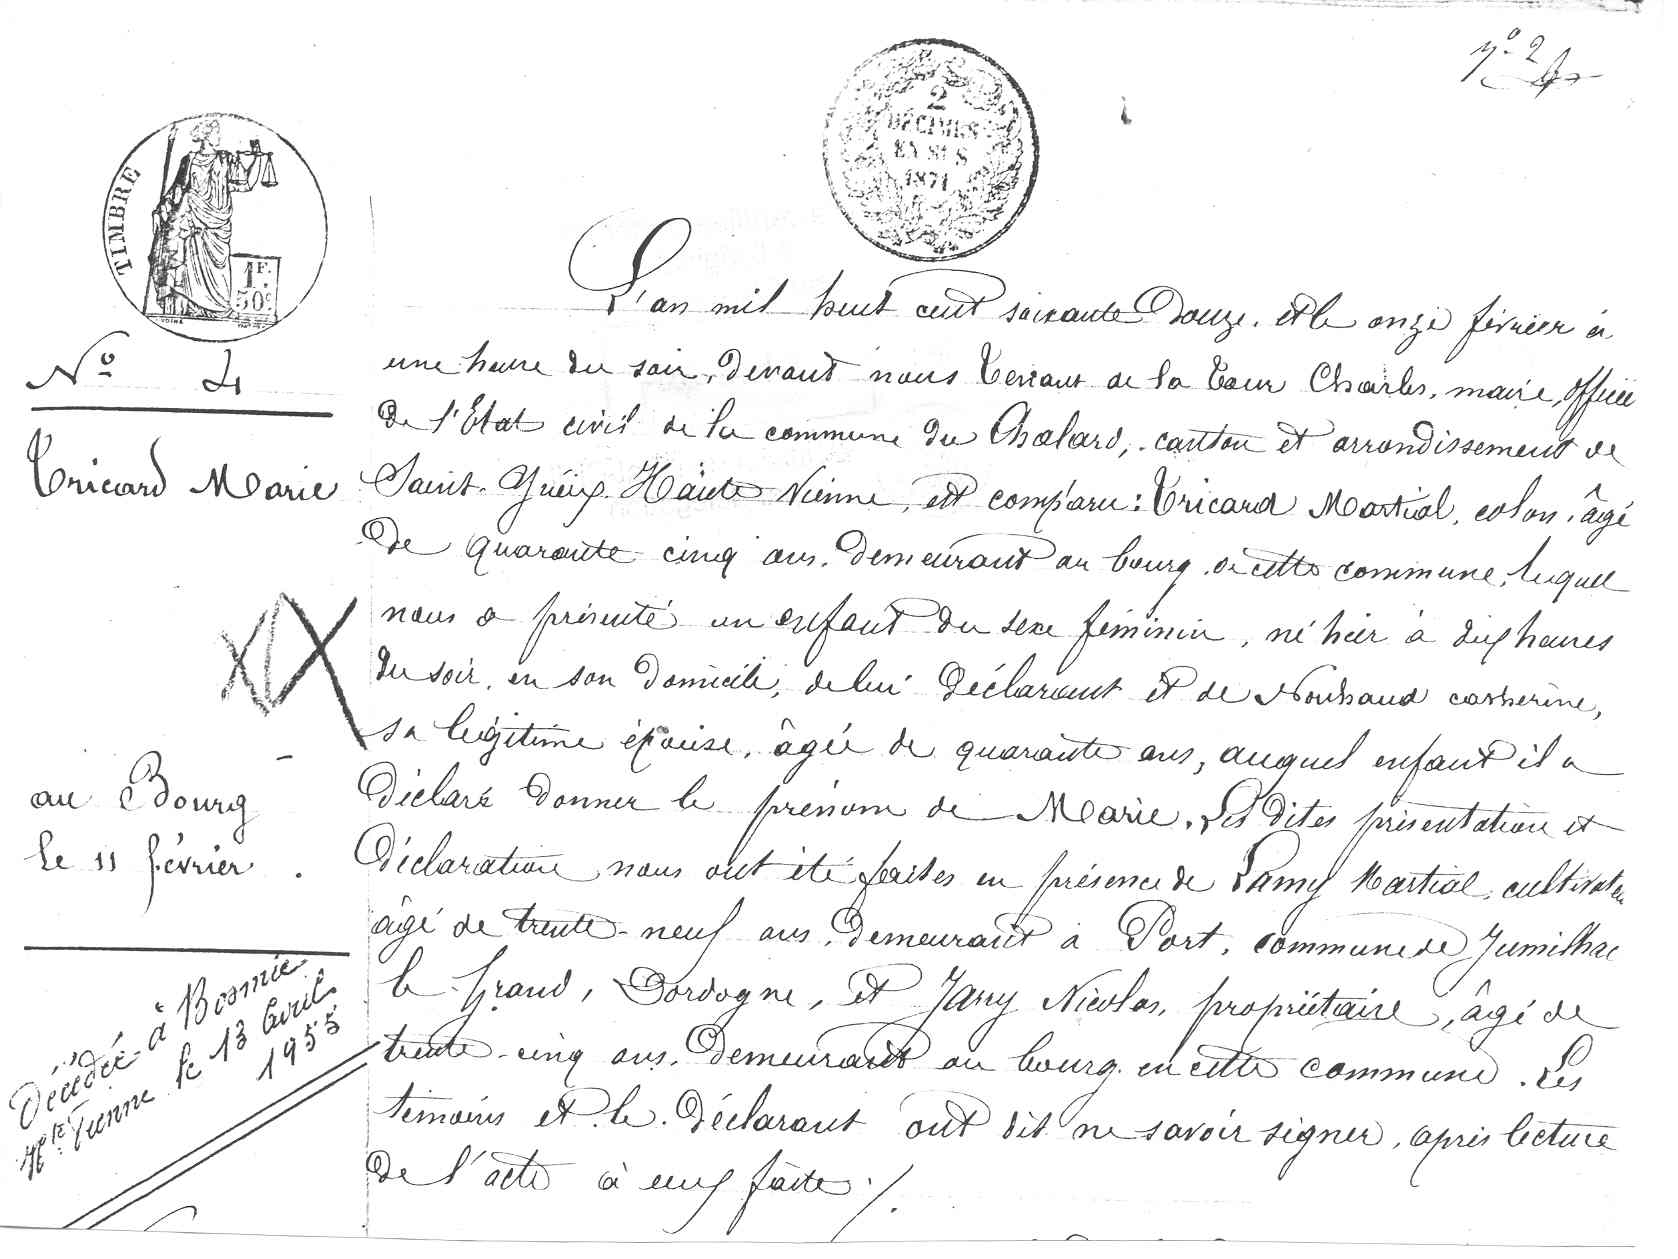 n° 2
2
DÉCIMES
EN SUS
1871
TIMBRE
1F.
50c
N° 4
Tricard Marie
au Bourg
le 11 février.
Décédée à Bosmie
Hte Vienne le 13 Avril
1955
L'an mil huit cent soixante Douze. et le onze février à
une heure du soir, devant nous Terrant de la Tour Charles, maire, officier
De l'Etat civil de la commune du Chalard, canton et arrondissement de
Saint-Yrieix. Haute Vienne, est comparu: Tricard Martial, colon, âgé
De quarante-cinq ans, demeurant au bourg de cette commune, lequel
nous a présenté un enfant du sexe féminin, né hier à dix heures
du soir, en son domicile, de lui déclarant et de Nouhaud catherine,
sa légitime épouse, âgée de quarante ans, auquel enfant il a
Déclaré Donner le prénom de Marie. Les dites présentation et
Déclaration nous ont été faites en présence de Lamy Martial, cultivateur
âgé de trente-neuf ans, Demeurant à Port, commune de Jumilhac
le-Grand, Dordogne, et Jarry Nicolas, propriétaire, âgé de
trente-cinq ans, Demeurant au bourg en cette commune. Les
témoins et le Déclarant ont dit ne savoir signer, après lecture
De l'acte à eux faite ./.